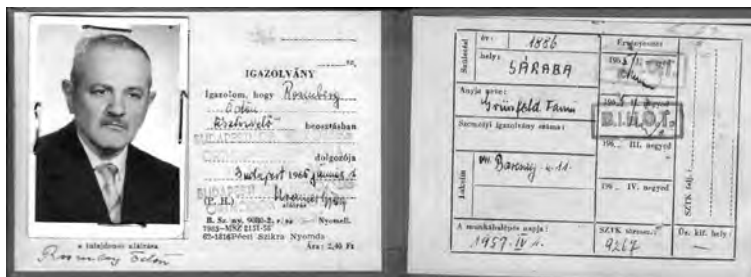 IGAZOLVÁNY
Igazolom, hogy Rosenberg
Ödön
beosztásban
BUDAPEST
dolgozója
Budapest 1965 június 1
BUDAPEST
(P. H.) aláírás
B. Sz. ny. 9080-2. r. sz. — Nyomell.
7965-MSZ 2151-50
62-1516 Pécsi Szikra Nyomda
Ára: 2,40 Ft
a tulajdonos aláírása
Ödön
Születési
év: 1886
hely: SÁRABA
Anyja neve:
Grünfeld Fanni
Személyi igazolvány száma:
Lakcím
VIII. u. 11.
A munkábalépés napja:
1957. IV. 1.
Érvényesítés
I. negyed
II. negyed
B.I.H.O.T.
196.. III. negyed
196.. IV. negyed
SZTK törzssz.:
9267
SZTK felj.:
Üz. kif. hely:
—